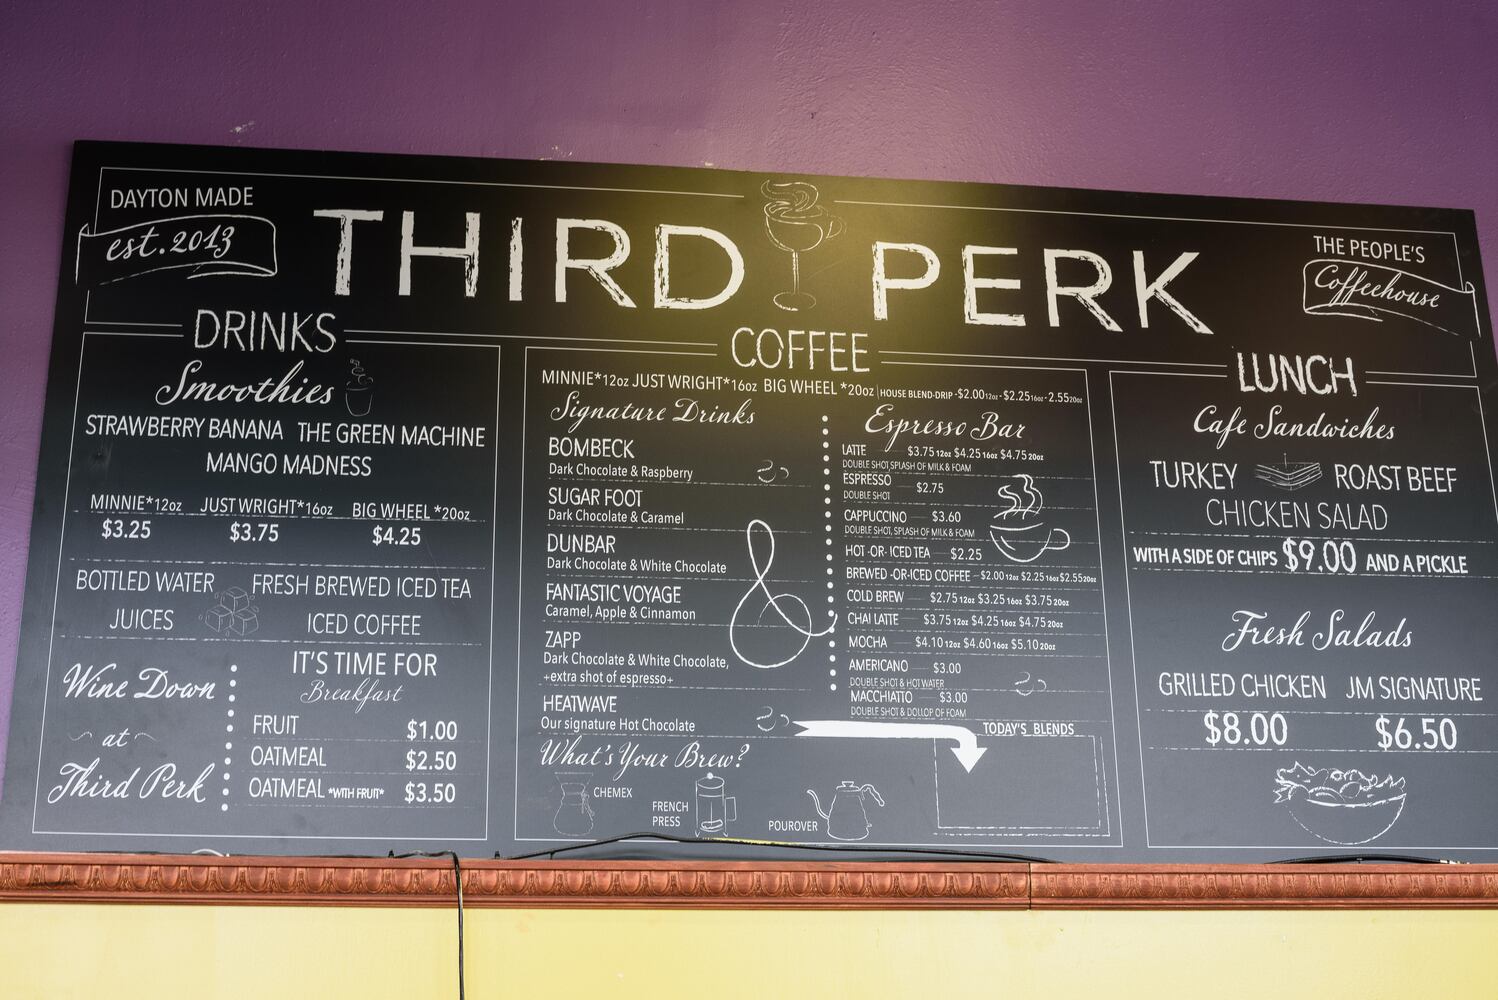 DAYTON MADE
est. 2013
THIRD PERK
THE PEOPLE'S
Coffeehouse
DRINKS
Smoothies
STRAWBERRY BANANA THE GREEN MACHINE
MANGO MADNESS
MINNIE*12oz JUST WRIGHT*16oz BIG WHEEL *20oz
$3.25 $3.75 $4.25
BOTTLED WATER FRESH BREWED ICED TEA
JUICES ICED COFFEE
Wine Down
at
Third Perk
IT'S TIME FOR
Breakfast
FRUIT $1.00
OATMEAL $2.50
OATMEAL *WITH FRUIT* $3.50
COFFEE
MINNIE*12oz JUST WRIGHT*16oz BIG WHEEL *20oz | HOUSE BLEND-DRIP -$2.00 12oz -$2.25 16oz - 2.55 20oz
Signature Drinks
BOMBECK
Dark Chocolate & Raspberry
SUGAR FOOT
Dark Chocolate & Caramel
DUNBAR
Dark Chocolate & White Chocolate
FANTASTIC VOYAGE
Caramel, Apple & Cinnamon
ZAPP
Dark Chocolate & White Chocolate,
+extra shot of espresso+
HEATWAVE
Our signature Hot Chocolate
&
Espresso Bar
LATTE $3.75 12oz $4.25 16oz $4.75 20oz
DOUBLE SHOT, SPLASH OF MILK & FOAM
ESPRESSO $2.75
DOUBLE SHOT
CAPPUCCINO $3.60
DOUBLE SHOT, SPLASH OF MILK & FOAM
HOT -OR- ICED TEA $2.25
BREWED -OR-ICED COFFEE - $2.00 12oz $2.25 16oz $2.55 20oz
COLD BREW $2.75 12oz $3.25 16oz $3.75 20oz
CHAI LATTE $3.75 12oz $4.25 16oz $4.75 20oz
MOCHA $4.10 12oz $4.60 16oz $5.10 20oz
AMERICANO $3.00
DOUBLE SHOT & HOT WATER
MACCHIATTO $3.00
DOUBLE SHOT & DOLLOP OF FOAM
What's Your Brew?
CHEMEX
FRENCH
PRESS
POUROVER
TODAY'S BLENDS
LUNCH
Cafe Sandwiches
TURKEY ROAST BEEF
CHICKEN SALAD
WITH A SIDE OF CHIPS $9.00 AND A PICKLE
Fresh Salads
GRILLED CHICKEN JM SIGNATURE
$8.00 $6.50